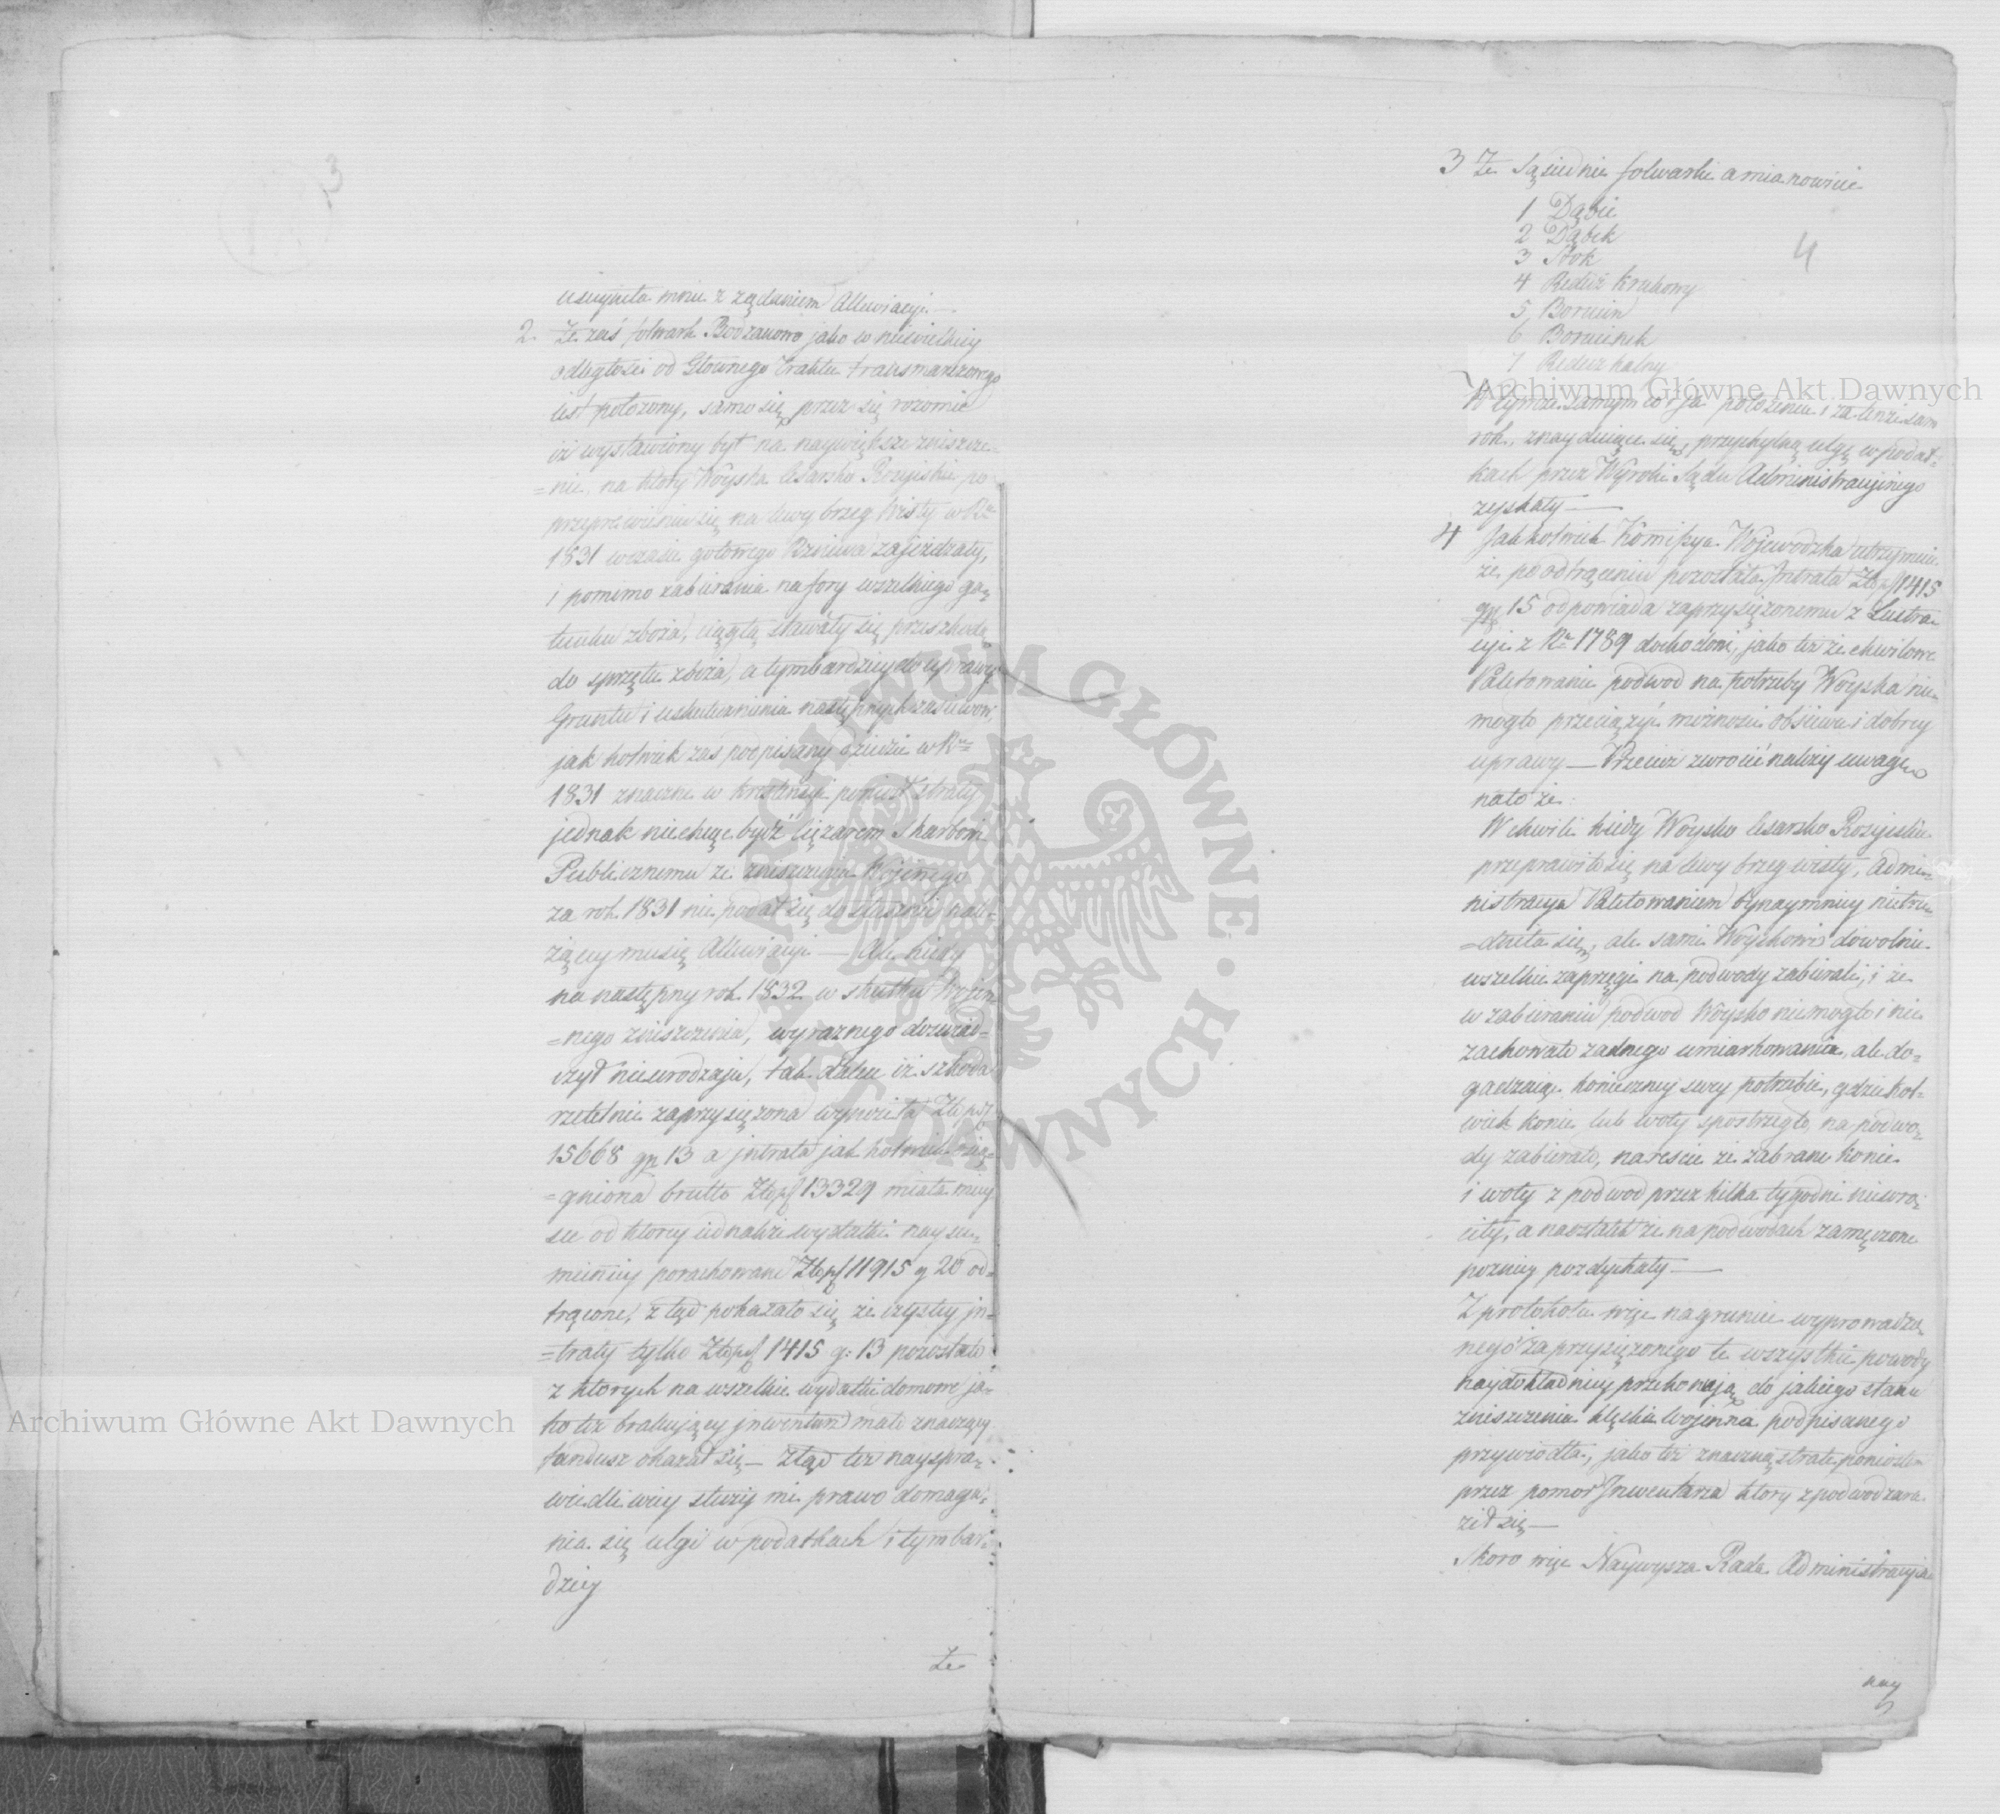 3
usunęła mnie z żądaniem Allewiacyi. —
2. Że zaś folwark Bodzanowo jako w niewielkiey
odległości od Głównego Traktu transmarszowego
iest położony, samo się przez się rozumie
iż wystawiony był na naywiększe zniszcze=
=nie, na który Woyska Cesarsko Rossyiskie po
przeprawieniu się na lewy brzeg Wisły w Rk
1831 wczasie gotowego Żniwa zajeżdzały,
i pomimo zabierania na fory wszelkiego ga=
tunku zboża, ciągłą stawały się przeszkodą
do sprzętu zboża, a tymbardziey do uprawy
Gruntu i uskutecznienia następnych zasiewow,
jak kolwiek zas podpisany dziedzic w Rku
1831 znaczne w krestencyi poniosł straty
jednak niechcąc bydź ciężarem Skarbowi
Publicznemu ze zniszczenia Wojennego
za rok 1831 nie podał się do słusznie nale=
żącey musię Allewiacyi — Ale kiedy
na następny rok 1832 w skutku Wojen
=nego zniszczenia, wyraznego doswiad=
czył nieurodzaju, tak dalece iż szkoda
rzetelnie zaprzysiężona wynosiła Złp
15668 gp 13 a jntrata jak kolwiek osią=
=gniona brutto Złp 13329 miała miey
sce od ktorey iednakże wydatki naysu=
mienniey porachowane Złp 11915 g 20 od=
trącone, z tąd pokazało się że czystey jn=
=traty tylko Złp 1415 g: 13 pozostało
z ktorych na wszelkie wydatki domowe ja=
ko też brakujący jnwentarz mało znaczący
fundusz okazał się — Ztąd też nayspra=
wiedliwiey służy mi prawo domaga=
nia się ulgi w podatkach i tymbar=
dziey
że
3 Że Sąsiednie folwarki amianowicie
1 Dąbie
2 Dąbek
3 Stok
4 Redecz Krukowy
5, Borucin
6 Borucinek
7 Redecz kalny
4
W tymże samym co i ja położeniu i za tenże sam
rok, znayduiące się, przychylną ulgę w podat=
kach przez Wyroki Sądu Administracyinego
zyskały —
4 Jakkolwiek Kommissya Wojewodzka utrzymuie
że po odtrąceniu pozostała Jntrata Złp 1415
gp 15 odpowiada zaprzysiężonemu z Lustra=
cyi z Rku 1789 dochodowi, jako też że chwilowe
Paletowanie podwod na potrzeby Woyska nie
mogło przeciążyć możności obsiewu i dobrey
uprawy — Przecież zwrocić należy uwagę
na to że:
W chwili kiedy Woysko Cesarsko Rossyiskie
przeprawiło się na lewy brzeg wisły, Admi=
nistracya Paletowaniem bynaymniey nietru=
=dniła się, ale sami Woyskowi dowolnie
wszelkie zaprzęgi na podwody zabierali, i że
w zabieraniu podwod Woysko niemogło i nie
zachowało żadnego umiarkowania, ale do=
gadzaiąc konieczney swey potrzebie, gdziekol=
wiek konie lub woły spostrzegło, na podwo=
dy zabierało, nareszcie że zabrane konie
i woły z podwod przez kilka tygodni niewro=
ciły, a naostatek że na podwodach zamęczone
pozniey pozdychały —
Z protokołu więc na gruncie wyprowadzo=
nego zaprzysiężonego te wszystkie powody
naydokładniey przekonają do jakiego stanu
zniszczenia klęska wojenna podpisanego
przywiodła, jako też znaczną stratę poniosłem
przez pomor Jnwentarza ktory z podwod zara=
ził się —
Skoro więc Naywyzsza Rada Administracyina
nay
Archiwum Główne Akt Dawnych
Archiwum Główne Akt Dawnych
ARCHIWUM GŁÓWNE · AKT DAWNYCH ·